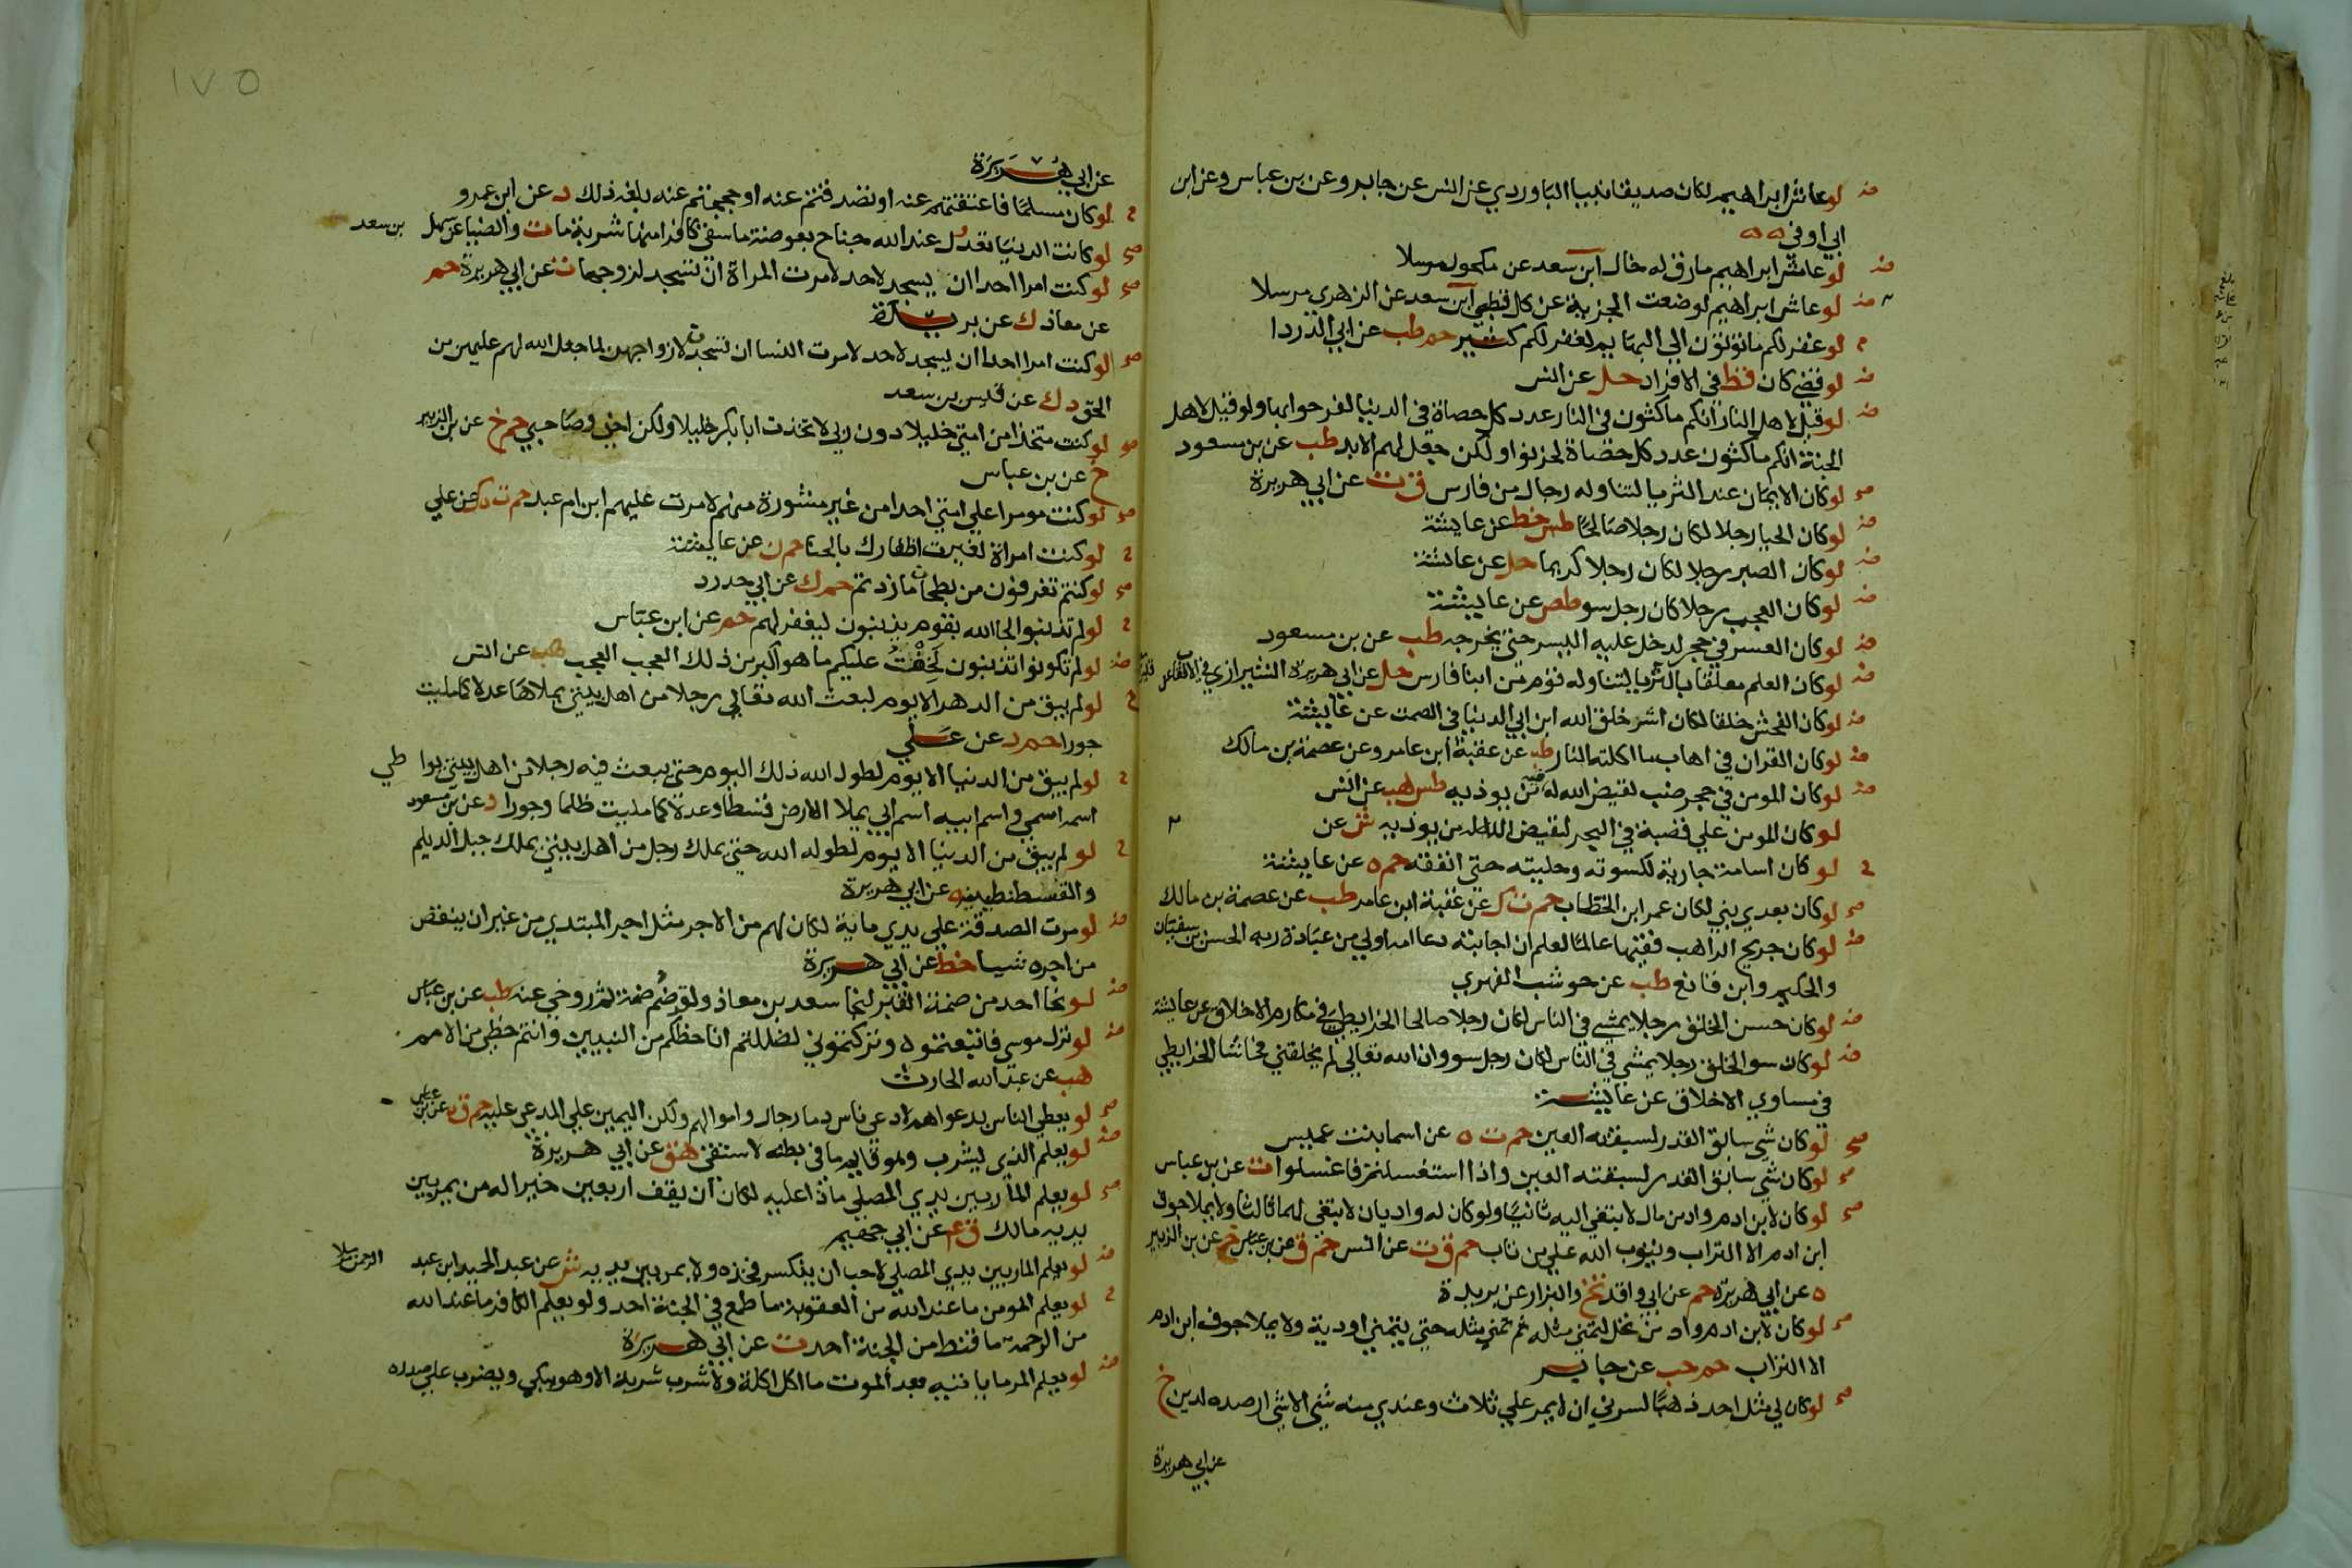 لو عاش ابراهيم لكان صديقا نبيا الباوردي عن انس عن جابر وعن بن عباس وعن ابن
ابي اوفي
لو عاش ابراهيم مارق له خال ابن سعد عن مكحول مرسلا
لو عاش ابراهيم لوضعت الجزية عن كل قبطي ابن سعد عن الزهري مرسلا
لو غفر لكم ما تؤتون الي البهايم لغفر لكم كثير حم طب عن ابي الدردا
لو قضي كان قط في الافراد حل عن انس
لو قيل لاهل النار انكم ماكثون في النار عدد كل حصاة في الدنيا لفرحوا بها ولو قيل لاهل
الجنة انكم ماكثون عدد كل حصاة لحزنوا ولكن جعل لهم الابد طب عن بن مسعود
لو كان الايمان عند الثريا لتناوله رجال من فارس ق ت عن ابي هريرة
لو كان الحيا رجلا لكان رجلا صالحا طس خط عن عايشة
لو كان الصبر رجلا لكان رجلا كريما حل عن عائشة
لو كان العجب رجلا كان رجل سو طص عن عايشة
لو كان العسر في حجر لدخل عليه اليسر حتي يخرجه طب عن بن مسعود
لو كان العلم معلقا بالثريا لتناوله قوم من ابنا فارس حل عن ابي هريرة الشيرازي في الالقاب عن
لو كان الفحش خلقا لكان اشر خلق الله ابن ابي الدنيا في الصمت عن عايشة
لو كان القران في اهاب ما اكلته النار طب عن عقبة ابن عامر وعن عصمة بن مالك
لو كان المومن في حجر ضب لقيض الله له فيه من يوذيه طس هب عن انس
لو كان المومن علي قصبة في البحر لقيض الله له من يوذيه ش عن
لو كان اسامة جارية لكسوته وحليته حتي انفقه حم ه عن عايشة
لو كان بعدي نبي لكان عمر ابن الخطاب حم ت ك عن عقبة ابن عامر طب عن عصمة بن مالك
لو كان جريج الراهب فقيها عالما لعلم ان اجابته دعا امه اولي من عبادة ربه الحسن بن سفيان
والحكيم وابن قانع طب عن حوشب الفهري
لو كان حسن الخلق رجلا يمشي في الناس لكان رجلا صالحا الخرايطي في مكارم الاخلاق عن عايشة
لو كان سو الخلق رجلا يمشي في الناس لكان رجل سو وان الله تعالي لم يخلقني فحاشا الخرايطي
في مساوي الاخلاق عن عايشة
لو كان شي سابق القدر لسبقته العين حم ت ه عن اسما بنت عميس
لو كان شي سابق القدر لسبقته العين واذا استغسلتم فاغسلوا ت عن بن عباس
لو كان لابن ادم واد من مال لابتغي اليه ثانيا ولو كان له واديان لابتغي لهما ثالثا ولا يملا جوف
ابن ادم الا التراب ويتوب الله علي من تاب حم ق ت عن انس حم ق عن بن عباس خ عن بن الزبير
ه عن ابي هريرة حم عن ابي واقد تخ والبزار عن بريدة
لو كان لابن ادم واد من نخل لتمني مثله ثم تمني مثله حتي يتمني اودية ولا يملا جوف ابن ادم
الا التراب حم حب عن جابر
لو كان لي مثل احد ذهبا لسرني ان لا يمر علي ثلاث وعندي منه شي الا شي ارصده لدين خ
عن ابي هريرة
١٧٥
عن ابي هريرة
لو كان مسلما فاعتقتم عنه او تصدقتم عنه او حججتم عنه بلغه ذلك د عن ابن عمرو
لو كانت الدنيا تعدل عند الله جناح بعوضة ما سقي كافرا منها شربة ما ت والضيا عن سهل بن سعد
لو كنت امرا احدا ان يسجد لاحد لامرت المراة ان تسجد لزوجها ت عن ابي هريرة حم
عن معاذ ك عن بريدة
لو كنت امرا احدا ان يسجد لاحد لامرت النسا ان تسجدن لازواجهن لما جعل الله لهم عليهن من
الحق د ك عن قيس بن سعد
لو كنت متخذا من امتي خليلا دون ربي لاتخذت ابا بكر خليلا ولكن اخي وصاحبي حم خ عن بن الزبير
خ عن بن عباس
لو كنت مومرا علي امتي احدا من غير مشورة منهم لامرت عليهم ابن ام عبد حم ت ه ك عن علي
لو كنت امراة لغيرت اظفارك بالحنا حم ن عن عايشة
لو كنتم تغرفون من بطحان ما زدتم حم ك عن ابي حدرد
لو لم تذنبوا لجا الله بقوم يذنبون ليغفر لهم حم عن ابن عباس
لو لم تكونوا تذنبون لخفت عليكم ما هو اكبر من ذلك العجب العجب هب عن انس
لو لم يبق من الدهر الا يوم لبعث الله تعالي رجلا من اهل بيتي يملاها عدلا كما مليت
جورا حم د عن علي
لو لم يبق من الدنيا الا يوم لطول الله ذلك اليوم حتي يبعث فيه رجلا من اهل بيتي يواطي
اسمه اسمي واسم ابيه اسم ابي يملا الارض قسطا وعدلا كما مليت ظلما وجورا د عن بن مسعود
لو لم يبق من الدنيا الا يوم لطوله الله حتي يملك رجل من اهل بيتي يملك جبل الديلم
والقسطنطينية ه عن ابي هريرة
لو مرت الصدقة علي يدي ماية لكان لهم من الاجر مثل اجر المبتدي من غير ان ينقص
من اجره شيا خط عن ابي هريرة
لو نجا احد من ضمة القبر لنجا سعد بن معاذ ولقد ضم ضمة ثم روخي عنه طب عن بن عباس
لو نزل موسي فاتبعتموه وتركتموني لضللتم انا حظكم من النبيين وانتم حظي من الامم
هب عن عبد الله الحارث
لو يعطي الناس بدعواهم ادعي ناس دما رجال واموالهم ولكن اليمين علي المدعي عليه حم ق ه عن بن عباس
لو يعلم الذي يشرب وهو قايم ما في بطنه لاستقي هق عن ابي هريرة
لو يعلم المار بين يدي المصلي ماذا عليه لكان ان يقف اربعين خيرا له من يمر بين
يديه مالك ق ٤ عن ابي جهيم
لو يعلم المار بين يدي المصلي لاحب ان ينكسر فخذه ولا يمر بين يديه ش عن عبد الحميد ابن عبد الرحمن مرسلا
لو يعلم المومن ما عند الله من العقوبة ما طمع في الجنة احد ولو يعلم الكافر ما عند الله
من الرحمة ما قنط من الجنة احد ت عن ابي هريرة
لو يعلم المر ما ياتيه بعد الموت ما اكل اكلة ولا شرب شربة الا وهو يبكي ويضرب علي صدره